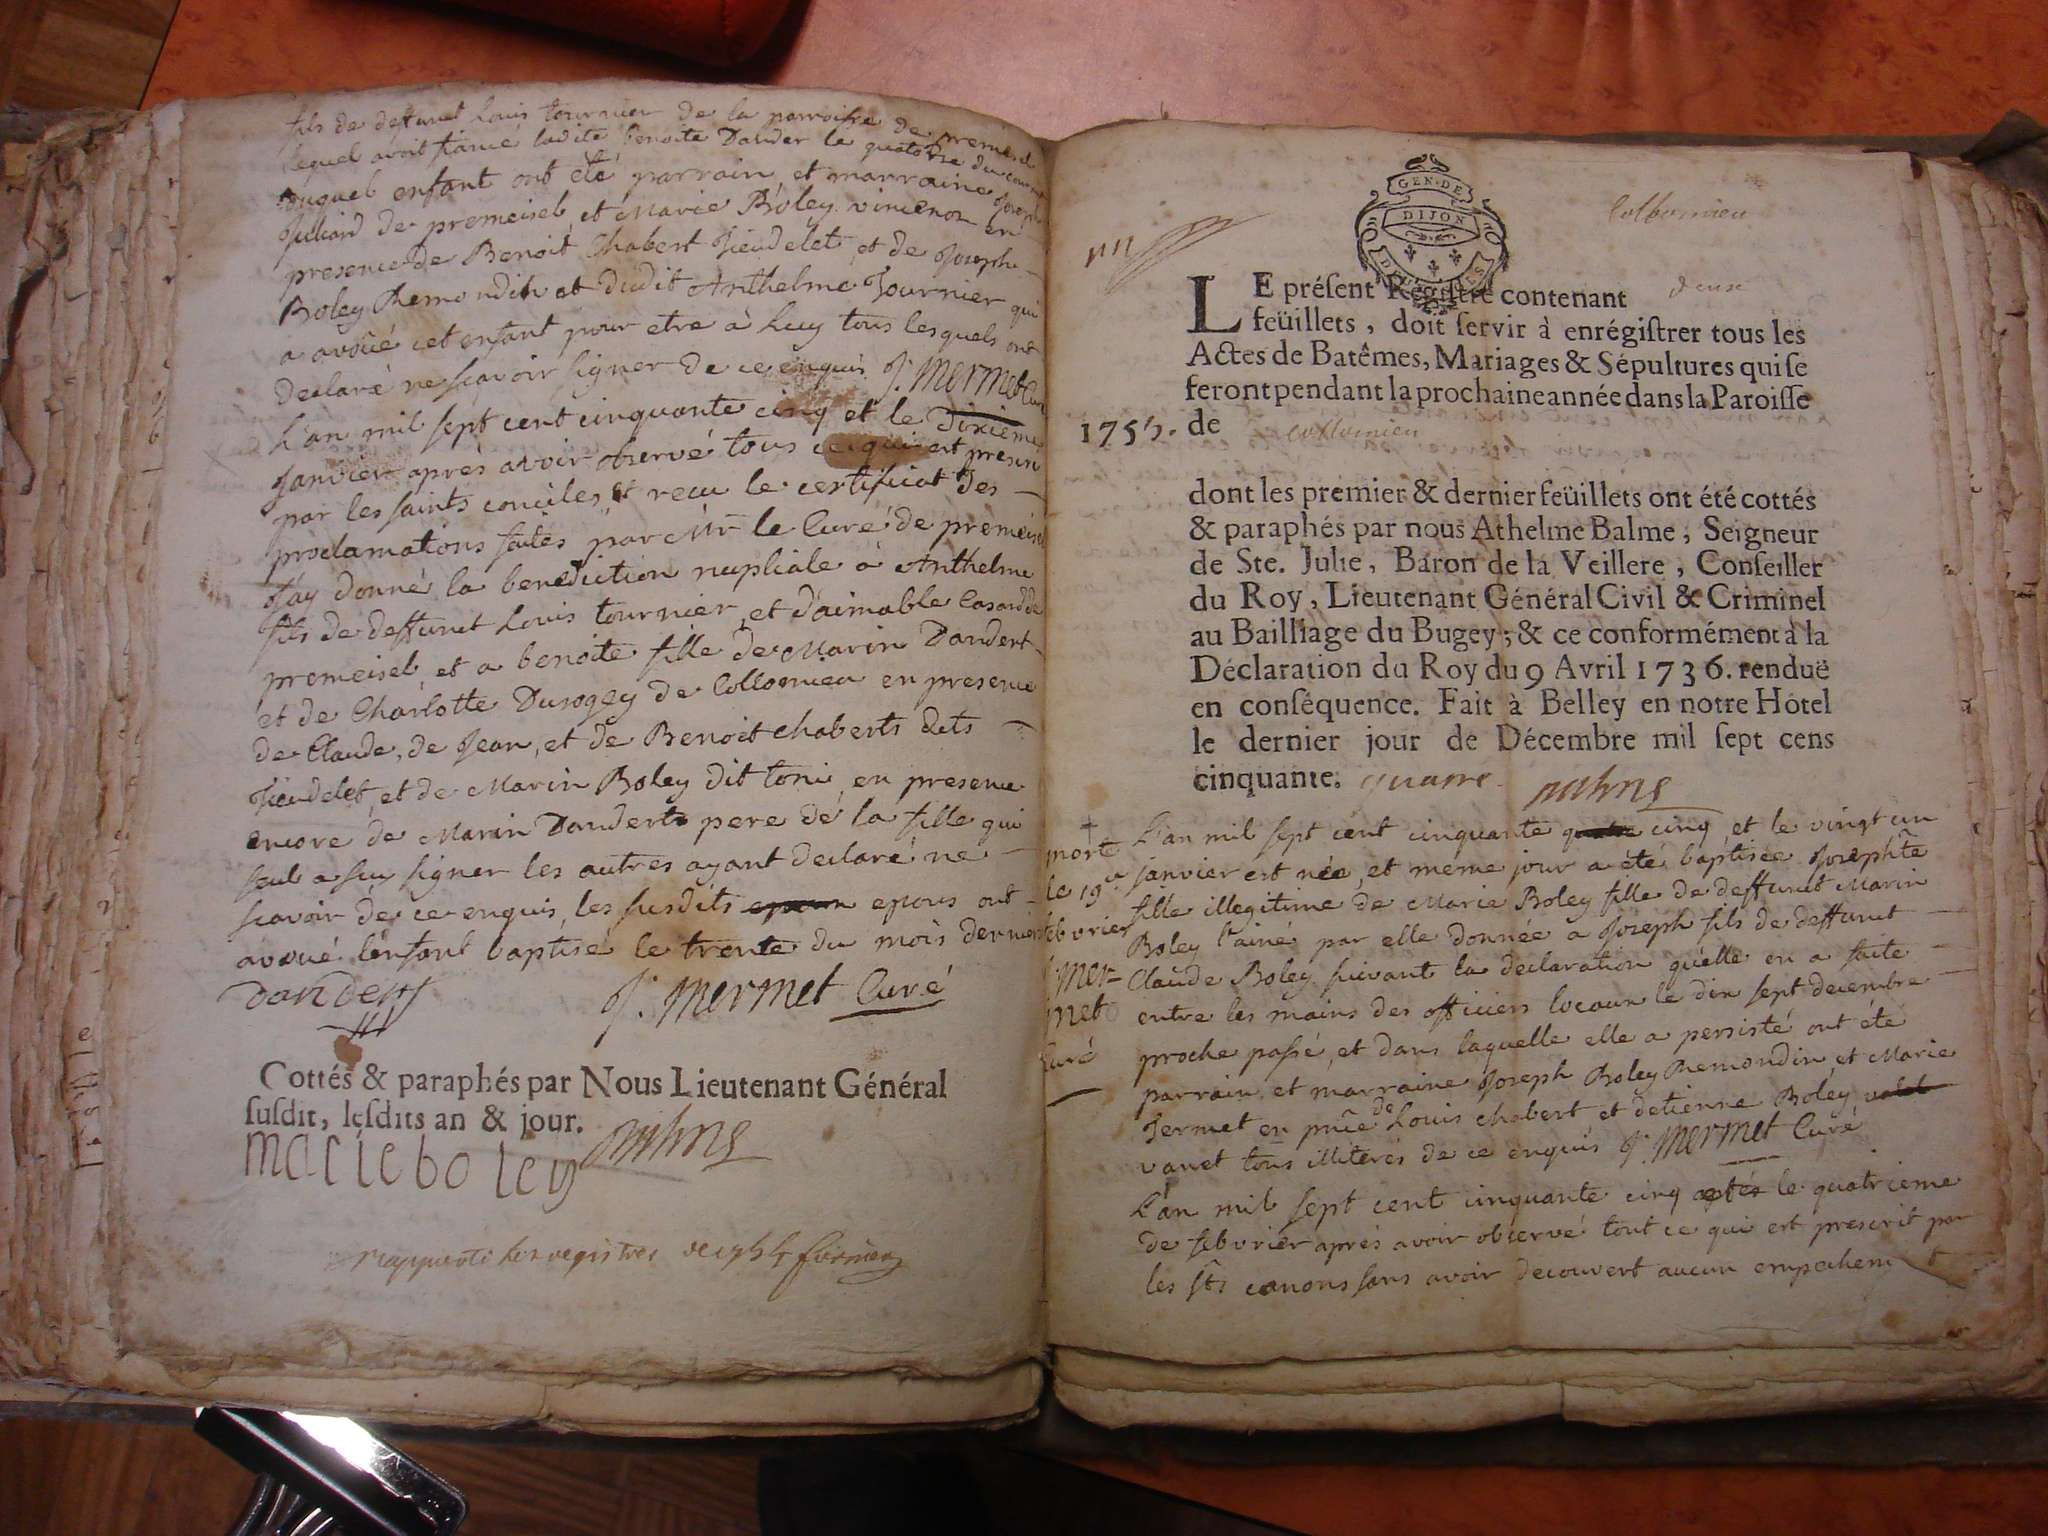 fils de deffunct Louis tournier de la parroisse de premeisel
lequel avoit fiancé ladite benoite Dander le quatorze du courant
duquel enfant ont été parrain et marraine Joseph
Julliard de premeisel et Marie Boley vincenon en
presence de Benoit Chabert Jieudelet, et de Joseph
Boley Remondin et dudit Anthelme Tournier qui
a avoüé cet enfant pour etre à luy tous lesquels ont
declaré ne scavoir signer de ce enquis J. Mermet Curé
L'an mil sept cent cinquante cinq et le Dixieme
Janvier après avoir observé tous ce qui est prescrit
par les saints conciles, et recu le certificat des
proclamations faites par Mr le Curé de premeisel
J'ay donné la benediction nuptiale à Anthelme
fils de deffunct Louis tournier, et d'aimable Casard de
premeisel, et a benoite fille de Marin Dandert
et de Charlotte Durogey de Collomieu en presence
de Claude, de Jean, et de Benoit chaberts dits
Jieudelet, et de Marin Boley dit toni, en presence
encore de Marin Danderts pere de la fille qui
seul a scu signer les autres ayant declaré ne
scavoir de ce enquis, les susdits epoux epous ont
avoué l'enfant baptisé le trente du mois dernier
Danderts
J. Mermet Curé
Cottés & paraphés par Nous Lieutenant Général
susdit, lesdits an & jour.
Balme
marie boley
rapporté les registres
GEN · DE
DIJON
Collomieu
LE présent Registre contenant deux
feüillets, doit servir à enrégistrer tous les
Actes de Batêmes, Mariages & Sépultures qui se
feront pendant la prochaine année dans la Paroisse
1755. de Collomieu
dont les premier & dernier feüillets ont été cottés
& paraphés par nous Athelme Balme, Seigneur
de Ste. Julie, Baron de la Veillere, Conseiller
du Roy, Lieutenant Général Civil & Criminel
au Bailliage du Bugey; & ce conformément à la
Déclaration du Roy du 9 Avril 1736. renduë
en conséquence. Fait à Belley en notre Hôtel
le dernier jour de Décembre mil sept cens
cinquante. quatre Balme
morte
le 19e
febvrier
J. Mer-
met
Curé
L'an mil sept cent cinquante quatre cinq, et le vingt un
janvier est née, et même jour a été baptisée Josephte
fille illegitime de Marie Boley fille de deffunct Marin
Boley l'ainé par elle donnée a Joseph fils de deffunct
Claude Boley suivant la declaration qu'elle en a faite
entre les mains des officiers locaux le dix sept decembre
proche passé, et dans laquelle elle a persisté ont été
parrain et marraine Joseph Boley Remondin et Marie
Jermet en pnce de Louis chabert et detienne Boley valet
vanet tous illiterés de ce enquis J. Mermet Curé
L'an mil sept cent cinquante cinq et le quatrieme
de febvrier après avoir observé tout ce qui est prescrit par
les sts canons sans avoir decouvert aucun empechement